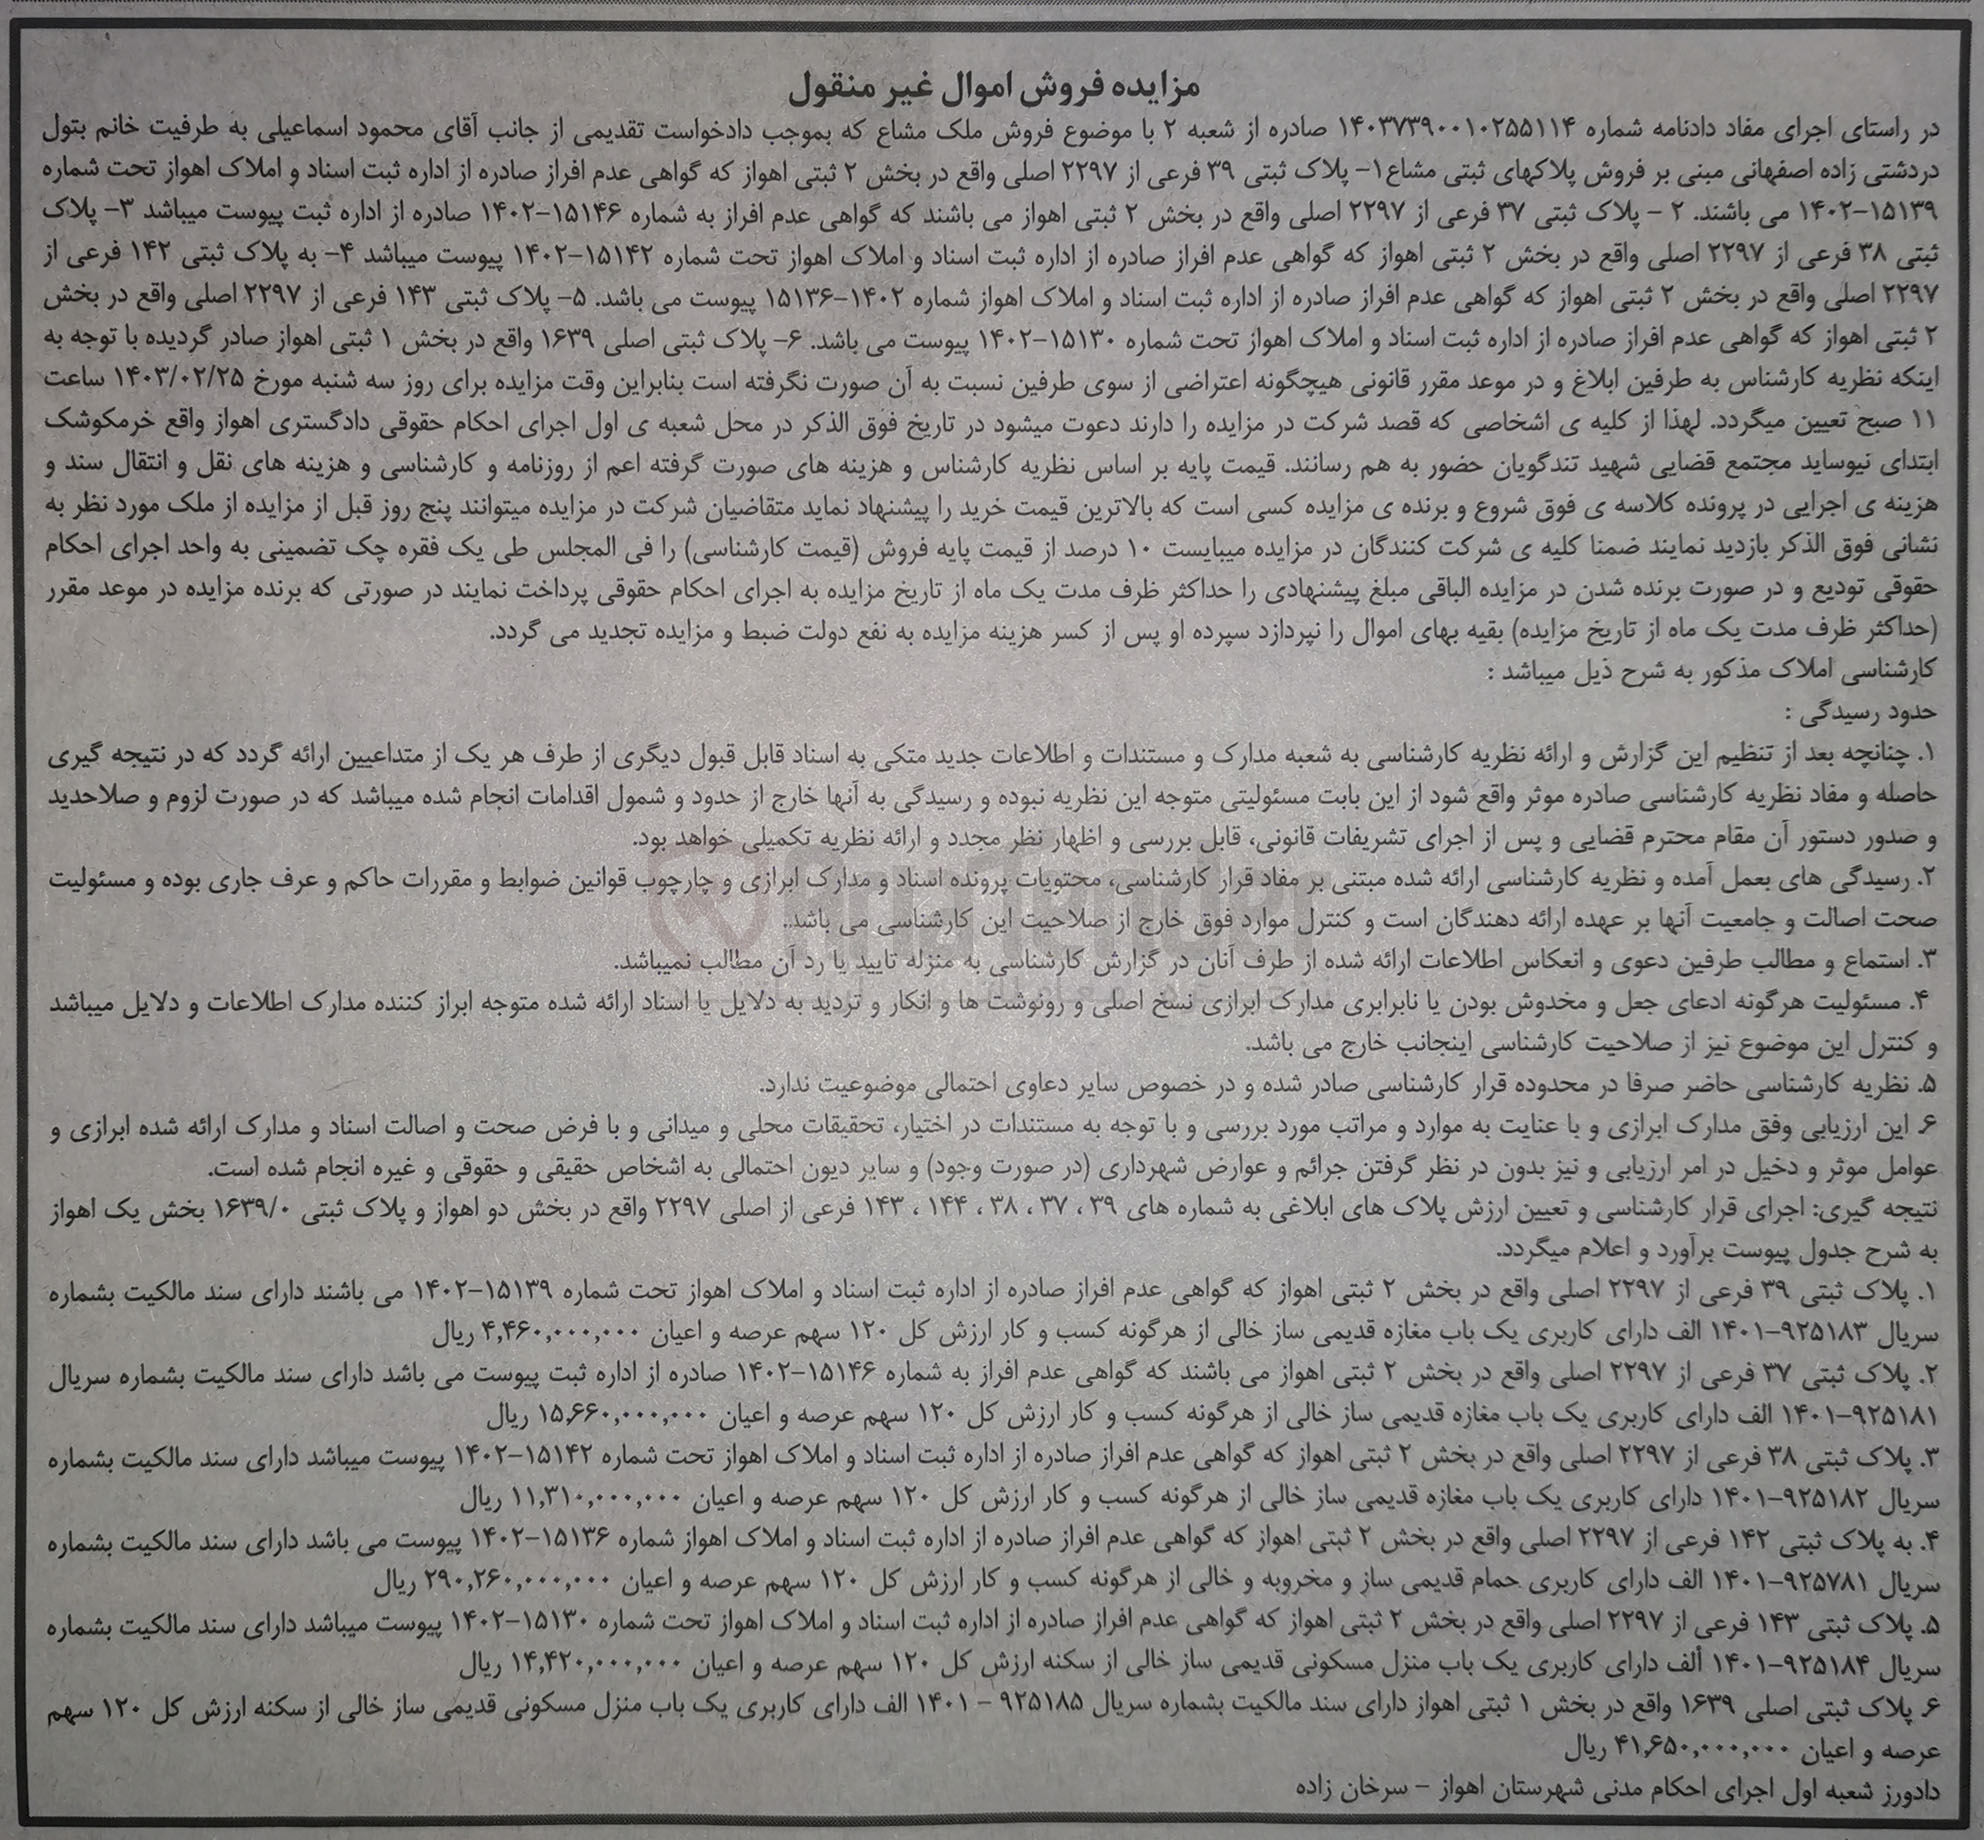 مزایده فروش اموال غیر منقول
در راستای اجرای مفاد دادنامه شماره ۱۴۰۳۷۳۹۰۰۰۱۰۲۵۵۱۱۴ صادره از شعبه ۲ با موضوع فروش ملک مشاع که بموجب دادخواست تقدیمی از جانب آقای محمود اسماعیلی به طرفیت خانم بتول
دردشتی زاده اصفهانی مبنی بر فروش پلاکهای ثبتی مشاع۱- پلاک ثبتی ۳۹ فرعی از ۲۲۹۷ اصلی واقع در بخش ۲ ثبتی اهواز که گواهی عدم افراز صادره از اداره ثبت اسناد و املاک اهواز تحت شماره
۱۴۰۲-۱۵۱۳۹ می باشند. ۲ - پلاک ثبتی ۳۷ فرعی از ۲۲۹۷ اصلی واقع در بخش ۲ ثبتی اهواز می باشند که گواهی عدم افراز به شماره ۱۴۰۲-۱۵۱۴۶ صادره از اداره ثبت پیوست میباشد ۳- پلاک
ثبتی ۳۸ فرعی از ۲۲۹۷ اصلی واقع در بخش ۲ ثبتی اهواز که گواهی عدم افراز صادره از اداره ثبت اسناد و املاک اهواز تحت شماره ۱۴۰۲-۱۵۱۴۲ پیوست میباشد ۴- به پلاک ثبتی ۱۴۲ فرعی از
۲۲۹۷ اصلی واقع در بخش ۲ ثبتی اهواز که گواهی عدم افراز صادره از اداره ثبت اسناد و املاک اهواز شماره ۱۴۰۲-۱۵۱۳۶ پیوست می باشد. ۵- پلاک ثبتی ۱۴۳ فرعی از ۲۲۹۷ اصلی واقع در بخش
۲ ثبتی اهواز که گواهی عدم افراز صادره از اداره ثبت اسناد و املاک اهواز تحت شماره ۱۴۰۲-۱۵۱۳۰ پیوست می باشد. ۶- پلاک ثبتی اصلی ۱۶۳۹ واقع در بخش ۱ ثبتی اهواز صادر گردیده با توجه به
اینکه نظریه کارشناس به طرفین ابلاغ و در موعد مقرر قانونی هیچگونه اعتراضی از سوی طرفین نسبت به آن صورت نگرفته است بنابراین وقت مزایده برای روز سه شنبه مورخ ۱۴۰۳/۰۲/۲۵ ساعت
۱۱ صبح تعیین میگردد. لهذا از کلیه ی اشخاصی که قصد شرکت در مزایده را دارند دعوت میشود در تاریخ فوق الذکر در محل شعبه ی اول اجرای احکام حقوقی دادگستری اهواز واقع خرمکوشک
ابتدای نیوساید مجتمع قضایی شهید تندگویان حضور به هم رسانند. قیمت پایه بر اساس نظریه کارشناس و هزینه های صورت گرفته اعم از روزنامه و کارشناسی و هزینه های نقل و انتقال سند و
هزینه ی اجرایی در پرونده کلاسه ی فوق شروع و برنده ی مزایده کسی است که بالاترین قیمت خرید را پیشنهاد نماید متقاضیان شرکت در مزایده میتوانند پنج روز قبل از مزایده از ملک مورد نظر به
نشانی فوق الذکر بازدید نمایند ضمنا کلیه ی شرکت کنندگان در مزایده میبایست ۱۰ درصد از قیمت پایه فروش (قیمت کارشناسی) را فی المجلس طی یک فقره چک تضمینی به واحد اجرای احکام
حقوقی تودیع و در صورت برنده شدن در مزایده الباقی مبلغ پیشنهادی را حداکثر ظرف مدت یک ماه از تاریخ مزایده به اجرای احکام حقوقی پرداخت نمایند در صورتی که برنده مزایده در موعد مقرر
(حداکثر ظرف مدت یک ماه از تاریخ مزایده) بقیه بهای اموال را نپردازد سپرده او پس از کسر هزینه مزایده به نفع دولت ضبط و مزایده تجدید می گردد.
کارشناسی املاک مذکور به شرح ذیل میباشد :
حدود رسیدگی :
۱. چنانچه بعد از تنظیم این گزارش و ارائه نظریه کارشناسی به شعبه مدارک و مستندات و اطلاعات جدید متکی به اسناد قابل قبول دیگری از طرف هر یک از متداعیین ارائه گردد که در نتیجه گیری
حاصله و مفاد نظریه کارشناسی صادره موثر واقع شود از این بابت مسئولیتی متوجه این نظریه نبوده و رسیدگی به آنها خارج از حدود و شمول اقدامات انجام شده میباشد که در صورت لزوم و صلاحدید
و صدور دستور آن مقام محترم قضایی و پس از اجرای تشریفات قانونی، قابل بررسی و اظهار نظر مجدد و ارائه نظریه تکمیلی خواهد بود.
۲. رسیدگی های بعمل آمده و نظریه کارشناسی ارائه شده مبتنی بر مفاد قرار کارشناسی، محتویات پرونده اسناد و مدارک ابرازی و چارچوب قوانین ضوابط و مقررات حاکم و عرف جاری بوده و مسئولیت
صحت اصالت و جامعیت آنها بر عهده ارائه دهندگان است و کنترل موارد فوق خارج از صلاحیت این کارشناسی می باشد.
۳. استماع و مطالب طرفین دعوی و انعکاس اطلاعات ارائه شده از طرف آنان در گزارش کارشناسی به منزله تایید یا رد آن مطالب نمیباشد.
۴. مسئولیت هرگونه ادعای جعل و مخدوش بودن یا نابرابری مدارک ابرازی نسخ اصلی و رونوشت ها و انکار و تردید به دلایل یا اسناد ارائه شده متوجه ابراز کننده مدارک اطلاعات و دلایل میباشد
و کنترل این موضوع نیز از صلاحیت کارشناسی اینجانب خارج می باشد.
۵. نظریه کارشناسی حاضر صرفا در محدوده قرار کارشناسی صادر شده و در خصوص سایر دعاوی احتمالی موضوعیت ندارد.
۶. این ارزیابی وفق مدارک ابرازی و با عنایت به موارد و مراتب مورد بررسی و با توجه به مستندات در اختیار، تحقیقات محلی و میدانی و با فرض صحت و اصالت اسناد و مدارک ارائه شده ابرازی و
عوامل موثر و دخیل در امر ارزیابی و نیز بدون در نظر گرفتن جرائم و عوارض شهرداری (در صورت وجود) و سایر دیون احتمالی به اشخاص حقیقی و حقوقی و غیره انجام شده است.
نتیجه گیری: اجرای قرار کارشناسی و تعیین ارزش پلاک های ابلاغی به شماره های ۳۹ ، ۳۷ ، ۳۸ ، ۱۴۴ ، ۱۴۳ فرعی از اصلی ۲۲۹۷ واقع در بخش دو اهواز و پلاک ثبتی ۱۶۳۹/۰ بخش یک اهواز
به شرح جدول پیوست برآورد و اعلام میگردد.
۱. پلاک ثبتی ۳۹ فرعی از ۲۲۹۷ اصلی واقع در بخش ۲ ثبتی اهواز که گواهی عدم افراز صادره از اداره ثبت اسناد و املاک اهواز تحت شماره ۱۴۰۲-۱۵۱۳۹ می باشند دارای سند مالکیت بشماره
سریال ۱۴۰۱-۹۲۵۱۸۳ الف دارای کاربری یک باب مغازه قدیمی ساز خالی از هرگونه کسب و کار ارزش کل ۱۲۰ سهم عرصه و اعیان ۴,۴۶۰,۰۰۰,۰۰۰ ریال
۲. پلاک ثبتی ۳۷ فرعی از ۲۲۹۷ اصلی واقع در بخش ۲ ثبتی اهواز می باشند که گواهی عدم افراز به شماره ۱۴۰۲-۱۵۱۴۶ صادره از اداره ثبت پیوست می باشد دارای سند مالکیت بشماره سریال
۱۴۰۱-۹۲۵۱۸۱ الف دارای کاربری یک باب مغازه قدیمی ساز خالی از هرگونه کسب و کار ارزش کل ۱۲۰ سهم عرصه و اعیان ۱۵,۶۶۰,۰۰۰,۰۰۰ ریال
۳. پلاک ثبتی ۳۸ فرعی از ۲۲۹۷ اصلی واقع در بخش ۲ ثبتی اهواز که گواهی عدم افراز صادره از اداره ثبت اسناد و املاک اهواز تحت شماره ۱۴۰۲-۱۵۱۴۲ پیوست میباشد دارای سند مالکیت بشماره
سریال ۱۴۰۱-۹۲۵۱۸۲ دارای کاربری یک باب مغازه قدیمی ساز خالی از هرگونه کسب و کار ارزش کل ۱۲۰ سهم عرصه و اعیان ۱۱,۳۱۰,۰۰۰,۰۰۰ ریال
۴. به پلاک ثبتی ۱۴۲ فرعی از ۲۲۹۷ اصلی واقع در بخش ۲ ثبتی اهواز که گواهی عدم افراز صادره از اداره ثبت اسناد و املاک اهواز شماره ۱۴۰۲-۱۵۱۳۶ پیوست می باشد دارای سند مالکیت بشماره
سریال ۱۴۰۱-۹۲۵۷۸۱ الف دارای کاربری حمام قدیمی ساز و مخروبه و خالی از هرگونه کسب و کار ارزش کل ۱۲۰ سهم عرصه و اعیان ۲۹۰,۲۶۰,۰۰۰,۰۰۰ ریال
۵. پلاک ثبتی ۱۴۳ فرعی از ۲۲۹۷ اصلی واقع در بخش ۲ ثبتی اهواز که گواهی عدم افراز صادره از اداره ثبت اسناد و املاک اهواز تحت شماره ۱۴۰۲-۱۵۱۳۰ پیوست میباشد دارای سند مالکیت بشماره
سریال ۱۴۰۱-۹۲۵۱۸۴ ألف دارای کاربری یک باب منزل مسکونی قدیمی ساز خالی از سکنه ارزش کل ۱۲۰ سهم عرصه و اعیان ۱۴,۴۲۰,۰۰۰,۰۰۰ ریال
۶. پلاک ثبتی اصلی ۱۶۳۹ واقع در بخش ۱ ثبتی اهواز دارای سند مالکیت بشماره سریال ۹۲۵۱۸۵ - ۱۴۰۱ الف دارای کاربری یک باب منزل مسکونی قدیمی ساز خالی از سکنه ارزش کل ۱۲۰ سهم
عرصه و اعیان ۴۱,۶۵۰,۰۰۰,۰۰۰ ریال
دادورز شعبه اول اجرای احکام مدنی شهرستان اهواز - سرخان زاده